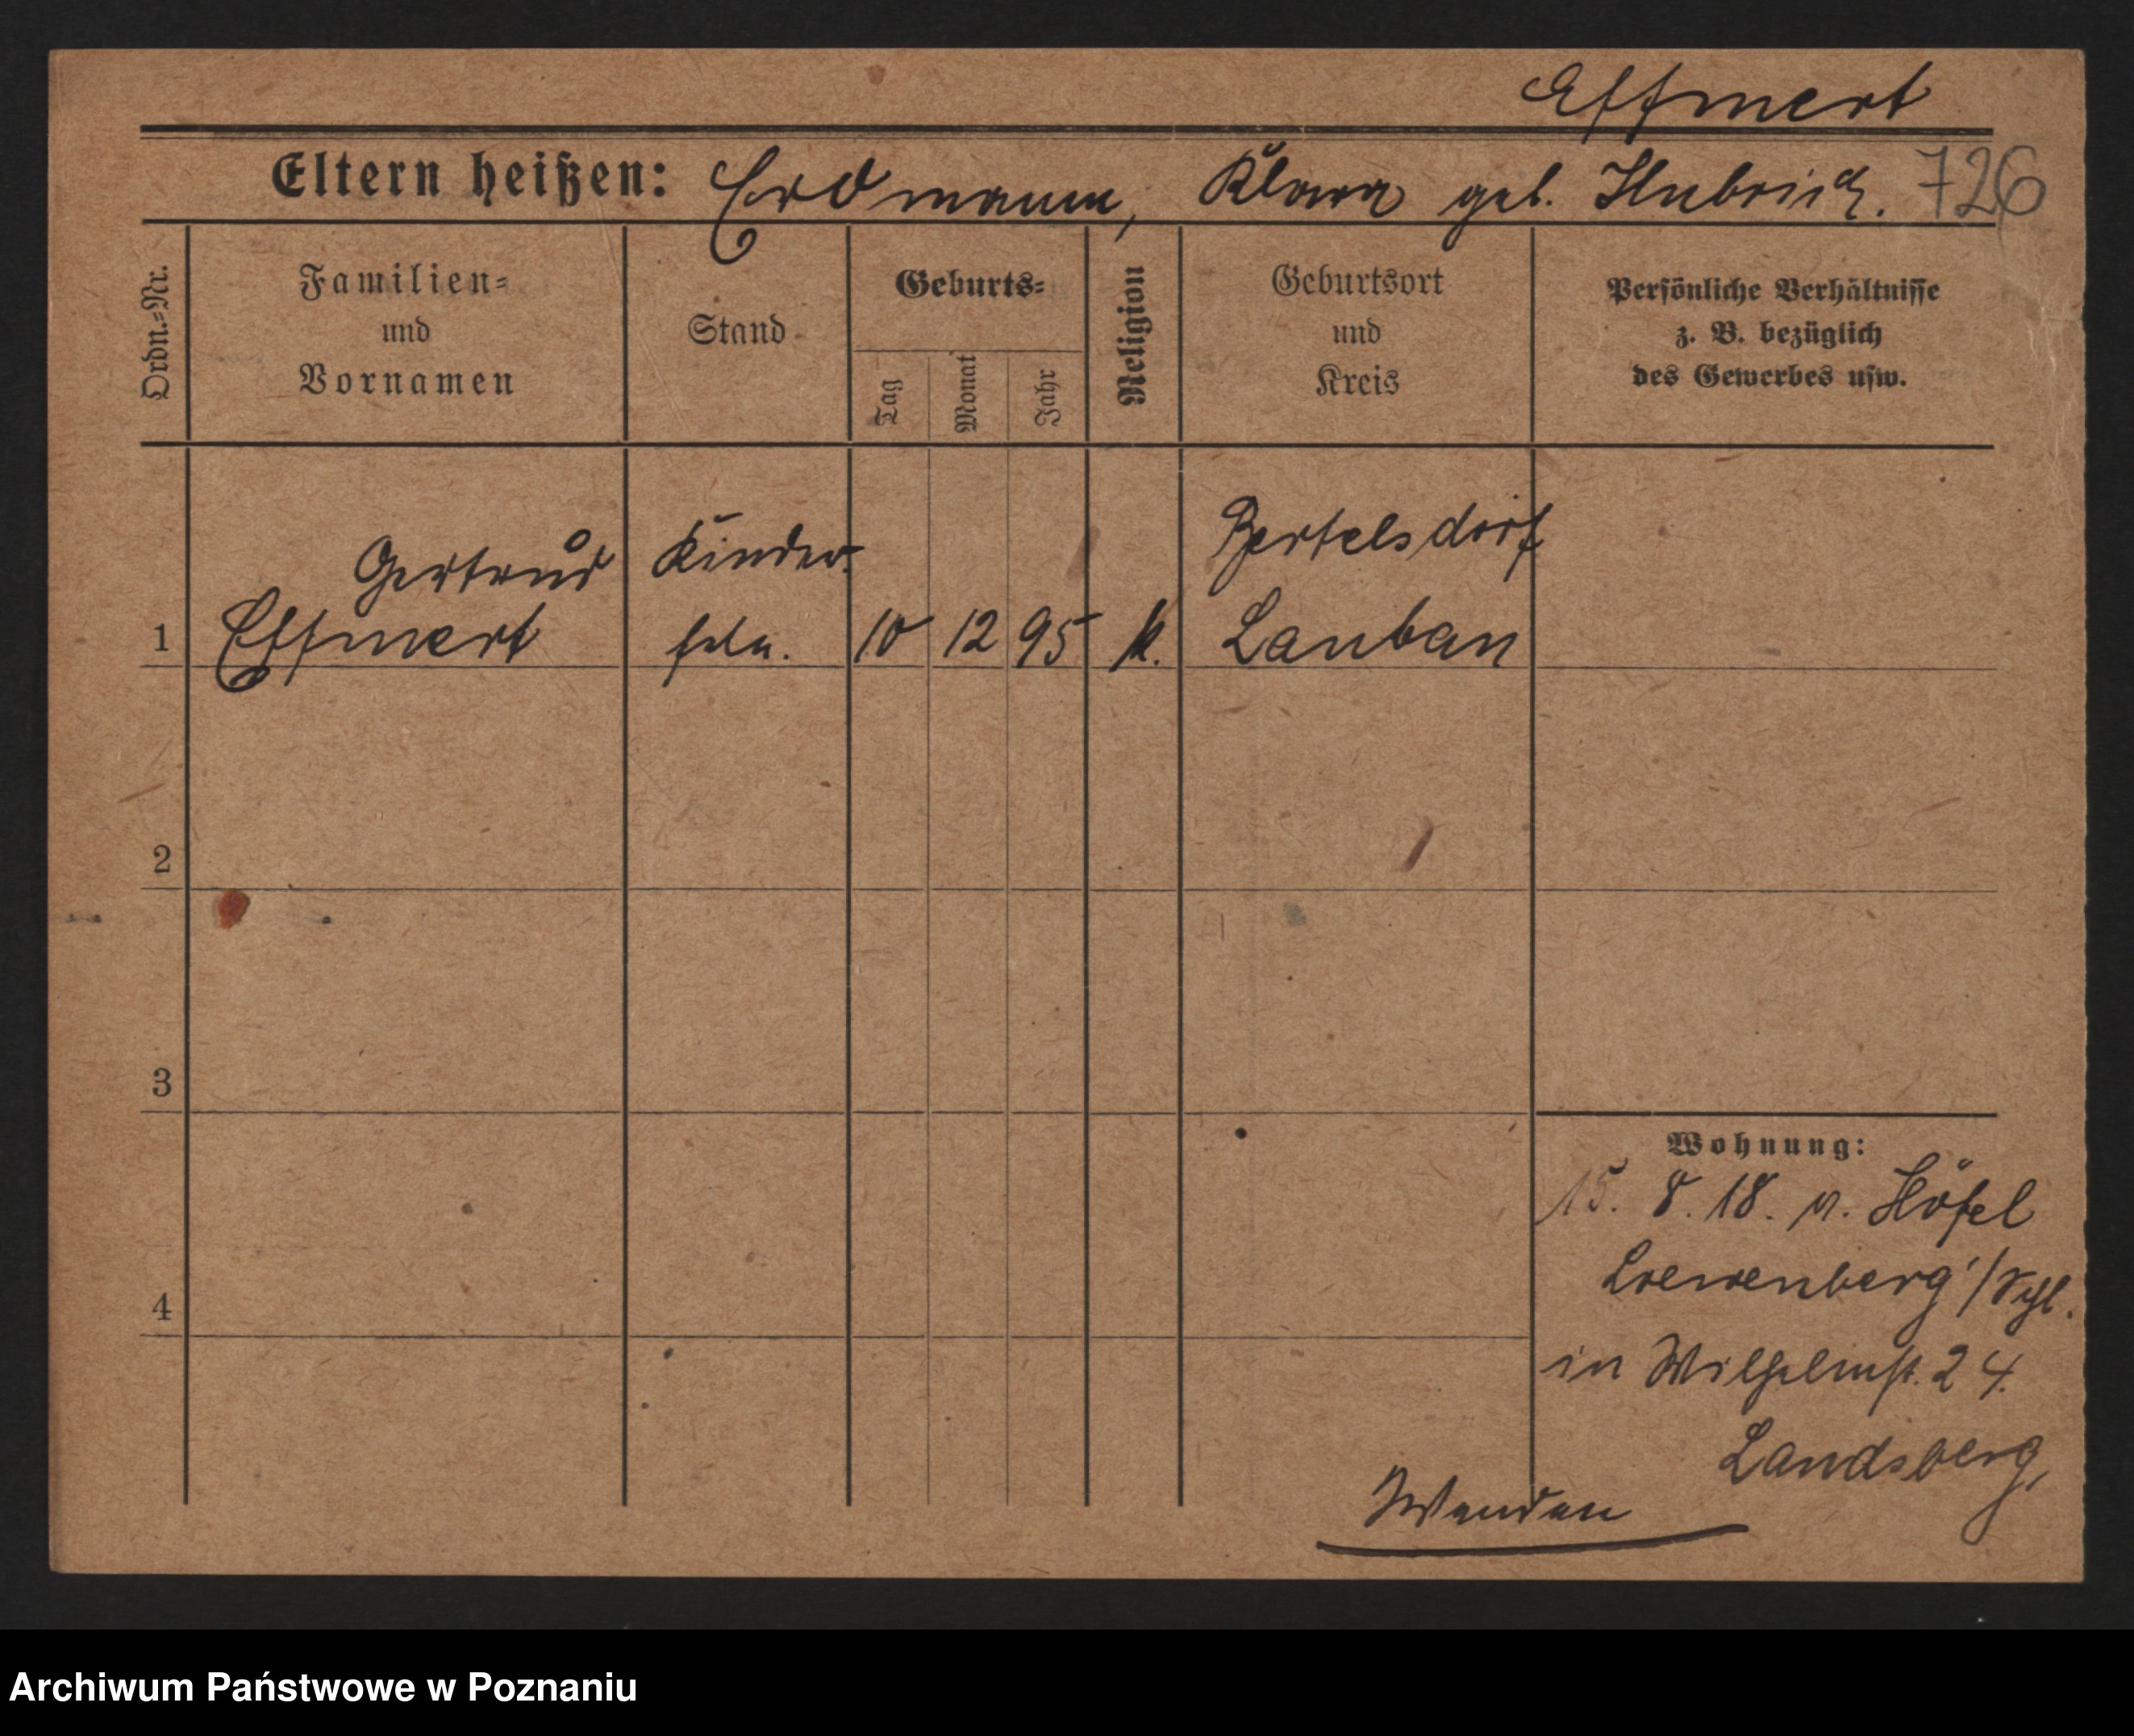 Effmert
Eltern heißen: Erdmann, Klara geb. Hubrich. 726
Ordn.-Nr.
Familien-
und
Vornamen
Stand
Geburts-
Tag
Monat
Jahr
Religion
Geburtsort
und
Kreis
Persönliche Verhältnisse
z. B. bezüglich
des Gewerbes usw.
Gertrud Kinder- Bertelsdorf
1 Effmert frln. 10 12 95 k. Lauban
2
3
4
Wohnung:
15. 8. 18. v. Höfel
Loewenberg /Schl.
in Wilhelmst. 24.
Landsberg,
Wenden
Archiwum Państwowe w Poznaniu